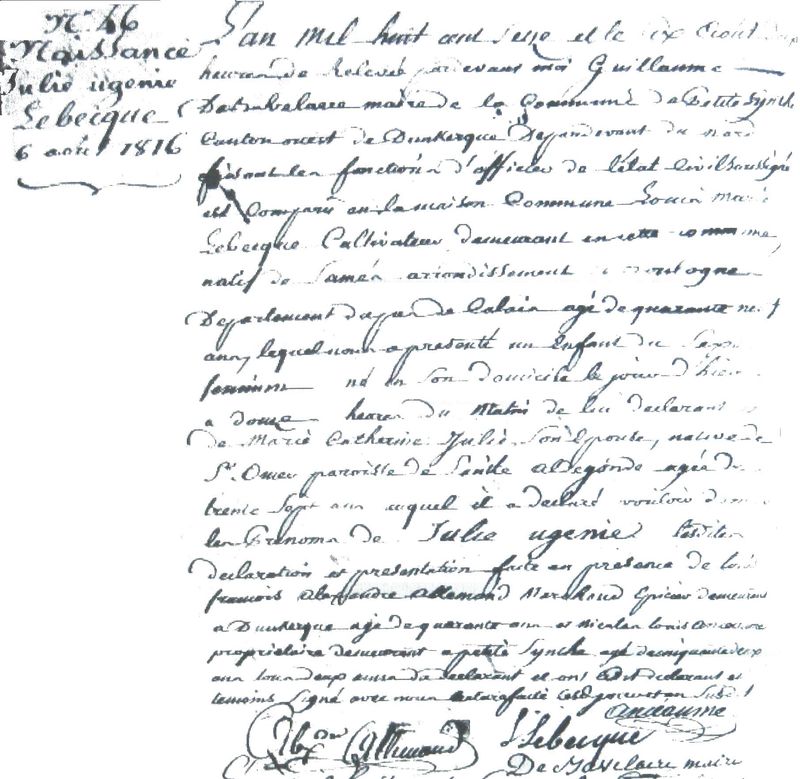 N° 46
Naissance
Julie ugenie
Lebecque
6 aout 1816
L'an mil huit cent seize et le six aout deux
heures de Relevée pardevant moi Guillaume
maire de la Commune de Petite Synthe
Canton ouest de Dunkerque Departement du nord
faisant les fonctions d'officier de l'état Civil soussigné
est Comparu en la maison Commune Louis Marie
Lebecque Cultivateur demeurant en cette commune
natif de Samér arrondissement
Departement du pas de Calais agé de quarante neuf
ans, lequel nous a presenté un Enfant du Sexe
feminin né en son domicile le jour d'hier
a douze heures du Matin de lui declarant et
de Marie Catherine Julie Son Epouse, native de
St Omer paroisse de Sainte aldegonde agée de
trente Sept ans auquel il a declaré vouloir donner
les Prenoms de Julie ugenie lesdites
declaration et presentation faite en presence de louis
françois alexandre allemand Marchand Epicier demeurant
a Dunkerque agé de quarante ans et Nicolas Louis ancaume
propriétaire demeurant a petite Synthe agé de cinquante deux
ans tous deux amis du declarant et ont ledit declarant et
temoins Signé avec nous
ancaume
Allemand L Lebecque
maire